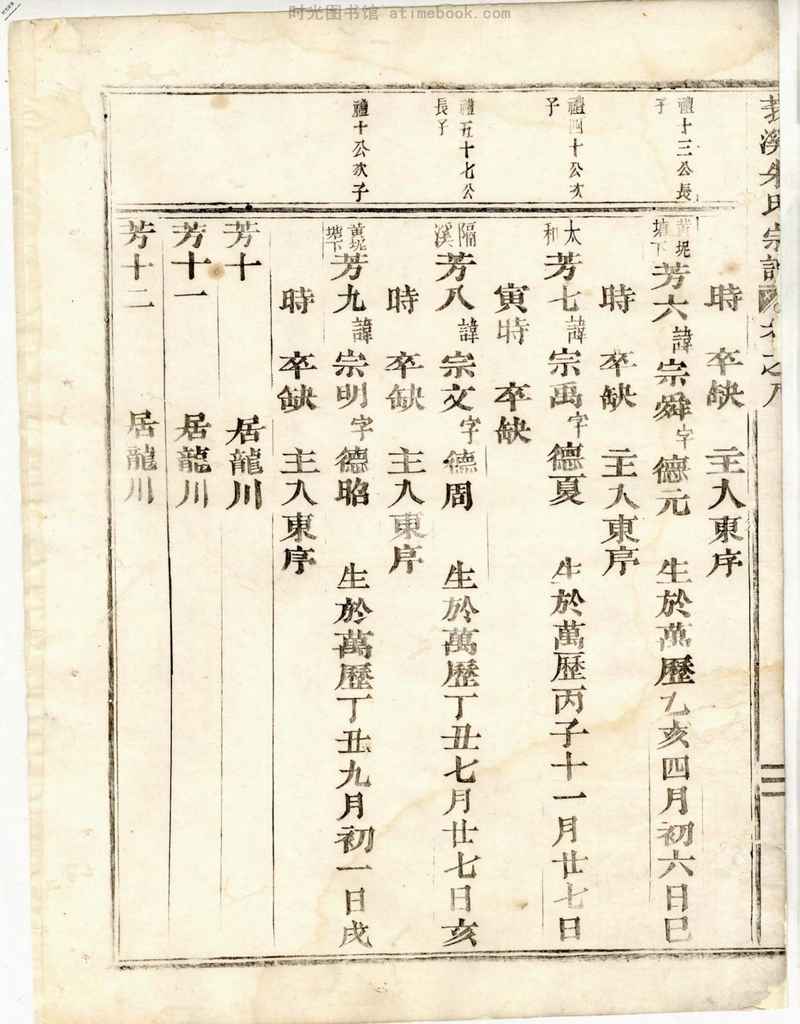 时光图书馆 atimebook.com
溪朱氏宗譜 卷之
二
禮十三公長
子
時 卒缺 主入東序
黄坭
塘下
芳六諱宗舜字德元 生於萬歷乙亥四月初六日巳
時 卒缺 主入東序
禮四十公次
子
太
和
芳七諱宗禹字德夏 生於萬歷丙子十一月廿七日
寅時 卒缺
禮五十七公
長子
隔
溪
芳八諱宗文字德周 生於萬歷丁丑七月廿七日亥
時 卒缺 主入東序
禮十公次子
黄坭
塘下
芳九諱宗明字德昭 生於萬歷丁丑九月初一日戌
時 卒缺 主入東序
芳十 居龍川
芳十一 居龍川
芳十二 居龍川